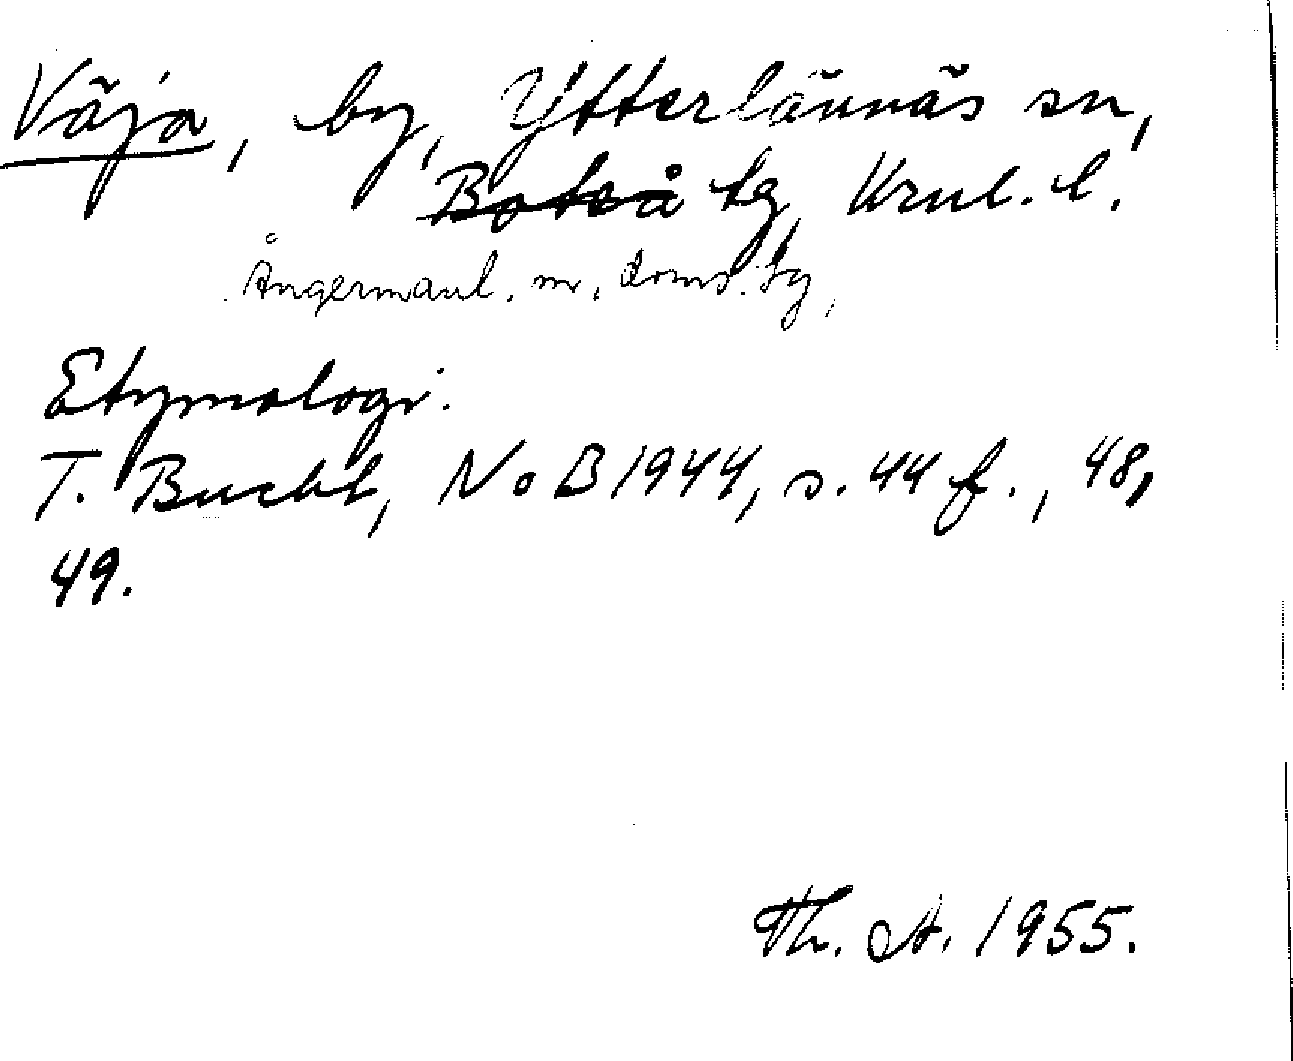 Väja, by, Ytterlännäs sn,
Boteå tg, Vrnl. l.
Ångermanl. m. doms. tg,
Etymologi:
T. Bucht, NoB 1944, s. 44 f., 48,
49.
Th. A. 1955.